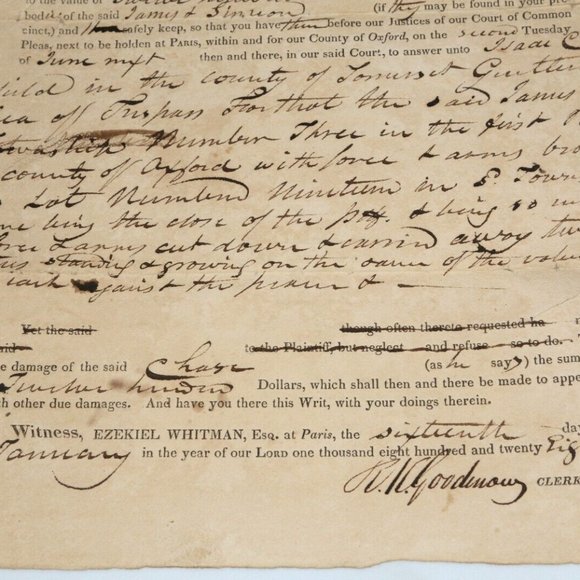 to the value of
bodies of the said James & Simeon (if they may be found in your pre-
cinct,) and them safely keep, so that you have them before our Justices of our Court of Common
Pleas, next to be holden at PARIS, within and for our County of Oxford, on the second Tuesday
of June next then and there, in our said Court, to answer unto Isaac C
in the county of Somerset
plea of Trespass For that the said James
Number Three in the first
county of Oxford with force & arms bro
Lot Number Nineteen in
being the close of the & being so
cut down & carried away
standing & growing on the same of the value
against the peace &
Yet the said though often thereto requested ha
said to the Plaintiff, but neglect and refuse so to do.
e damage of the said Chase (as he says) the sum
Twelve hundred Dollars, which shall then and there be made to appe
th other due damages. And have you there this Writ, with your doings therein.
Witness, EZEKIEL WHITMAN, Esq. at Paris, the sixteenth day
January in the year of our LORD one thousand eight hundred and twenty Eig
R. K. Goodenow CLERK